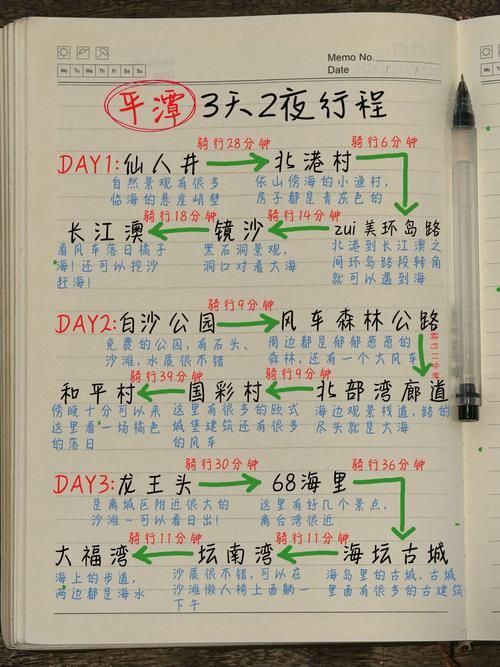 Memo No.
Mo Tu We Th Fr Sa Su
Date / /
平潭 3天2夜行程
骑行28分钟 骑行6分钟
DAY1:仙人井 北港村
自然景观有很多 依山傍海的小渔村,
临海的悬崖峭壁 房子都是青灰色的
骑行18分钟 骑行14分钟
长江澳 镜沙 zui美环岛路
看风车落日橘子 黑石洞景观, 北港到长江澳之
海!还可以挖沙 洞口对着大海 间环岛路段转角
赶海! 就可以遇到海
骑行9分钟
DAY2:白沙公园 风车森林公路
免费的公园,有石头、 周边都是郁郁葱葱的
沙滩,水质很不错 森林,还有一个大风车
骑行11分钟
骑行39分钟 骑行9分钟
和平村 国彩村 北部湾廊道
傍晚十分可以来 这里有很多的欧式 海边观景栈道,路的
这里看一场橘色 城堡建筑还有很多 尽头就是大海
的落日 的风车
骑行30分钟 骑行36分钟
DAY3:龙王头 68海里
是离城区附近很大的 这里有好几个景点,
沙滩~可以看日出! 离台湾很近
骑行11分钟 骑行11分钟
大福湾 坛南湾 海坛古城
海上的步道, 沙质很不错,可以在 海岛里的古城,古城
两边都是海水 沙滩懒人椅上面躺一 里面有很多的古建筑
下午